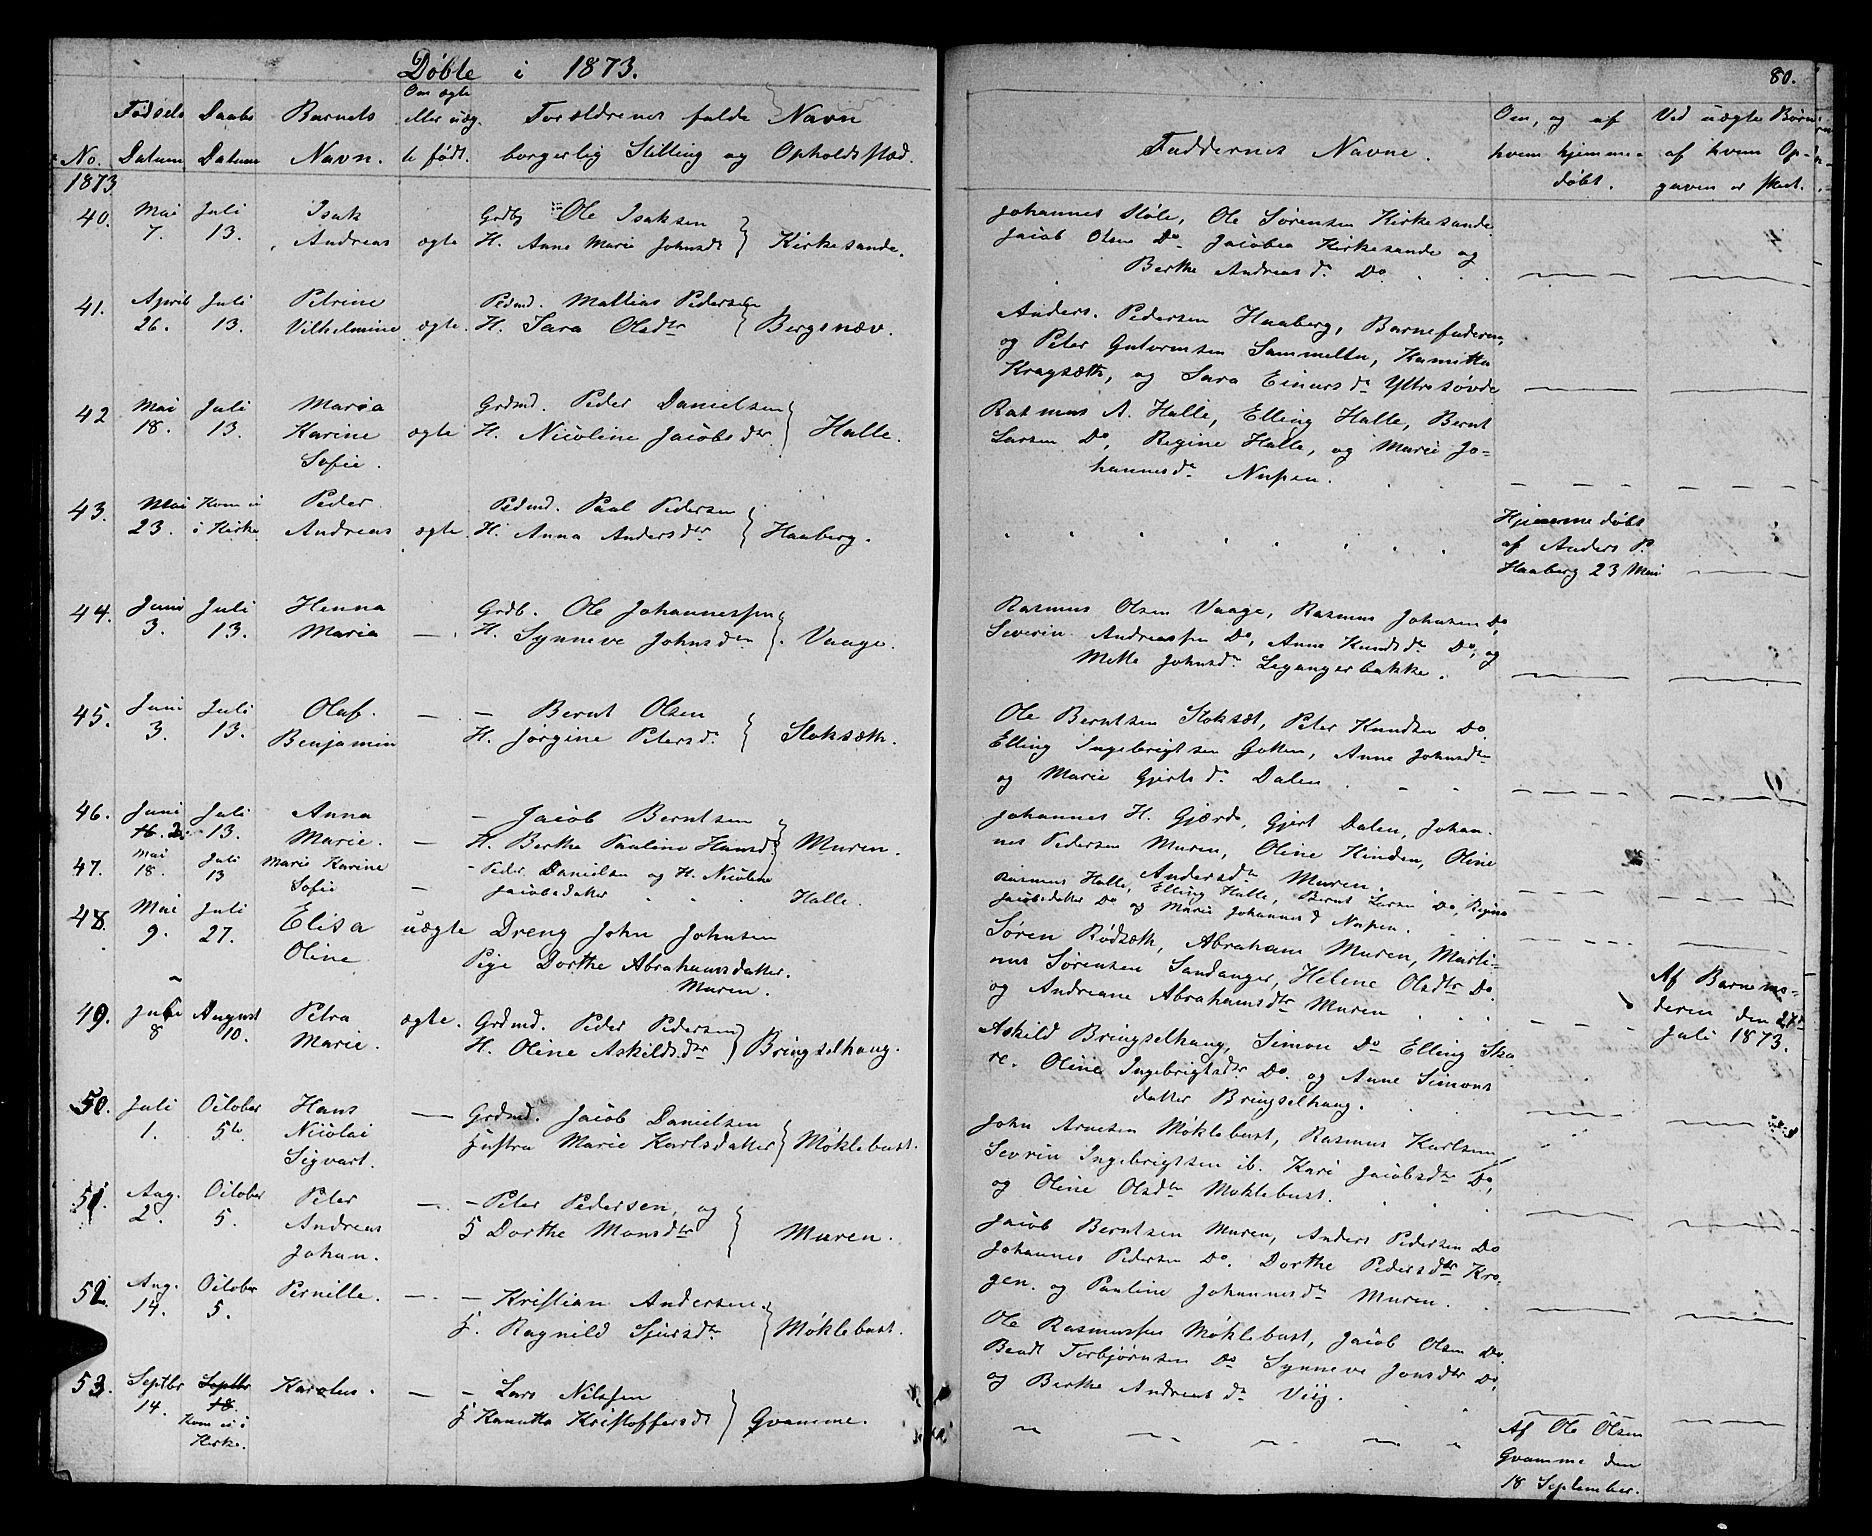 Døbte i 1873.
80.
No. Fødsels Datum Daabs Datum Barnets Navn. Om ægte eller uægte født. Forældrenes fulde Navn borgerlig Stilling og Opholdssted.
Faddernes Navne. Om, og af hvem hjemmedøbt. Ved uægte Børn af hvem Opgaven er skeet.
1873
40. Mai Juli Isak Ole Isaksen
7. 13. Andreas ægte H. Anne Marie Johnsdt Kirkesande.
Johannes Støle, Ole Sørensen Kirkesande
Jacob Olsen Do Jacobea Kirkesande og
Berthe Andreasd. Do
41. April Juli Petrine Mattias Pedersen
26. 13. Vilhelmine ægte. H. Sara Olsdtr Bergsnæv.
Anders. Pedersen Haaberg, Barnefaderen,
og Peter Gutormsen Sammelten, Kanutta
Kragsæth, og Sara Einarsdr Ytresøvde
42 Mai Juli Maria Grdmd. Peder Danielsen
18. 13. Karine ægte H. Nicoline Jacobsdtr. Halle.
Sofie.
Rasmus A. Halle, Elling Halle, Bernt
Larsen Do, Regine Halle, og Marie Jo-
hannesdr Nupen.
43. Mai Kom ei Peder Paul Pedersen
23. i Kirke Andreas ægte H. Anna Andersdtr Haaberg.
Hjemmedøbt
af Anders P.
Haaberg 23 Mai
44. Juni Juli Henna Grdb. Ole Johannessen
3. 13. Maria — H. Synneve Johnsdtr Vaage.
Rasmus Olsen Vaage, Rasmus Johnsen Do,
Severin Andreassen Do, Anne Knudsdr Do, og
Mette Johnsdr Leganger bakke.
45. Juni Juli Olaf. — — Bernt Olsen
3. 13. Benjamin H. Jørgine Petersdr Stoksæth.
Ole Berntsen Stoksæt, Peter Knudsen Do.
Elling Ingebrigtsen Gotten, Anne Johnsdtr
og Marie Gjertsdr Dalen
46. Juni Juli Anna — Jacob Berntsen
2. 13. Marie. — H. Berthe Pauline Hansd Muren.
Johannes H. Gjærde, Gjert Dalen, Johan-
nes Pedersen Muren, Oline Hinden, Oline
Andersdtr Muren.
47. Mai Juli Marie Karine — Peder Danielsen og H. Nicoline
18. 13 Sofie — Jacobsdatter Halle.
Rasmus Halle, Elling Halle, Bernt Larsen Do, Regine
Jacobsdatter Do og Marie Johannesd Nupen.
48. Mai Juli Elisa uægte Dreng John Johnsen
9. 27. Oline Pige Dorthe Abrahamsdatter.
Muren.
Søren Rødsæth, Abraham Muren, Marti-
nus Sørensen Sandanger, Helene Olsdtr Do.
og Andreane Abrahamsdtr Muren
Af Barnemo-
deren den 27de
Juli 1873.
49. August Petra ægte. Grdmd. Peder Pedersen
8 10. Marie. H. Oline Askildsdtr Bringselhaug.
Askild Bringselhaug, Simon Do Elling Ska
re. Oline Ingebrigtsdtr Do. og Anne Simons
datter Bringselhaug.
50. Juli October Hans — Grdmd. Jacob Danielsen
1. 5te Nicolai Hustru Marie Karlsdatter Møklebust.
Sigvart.
John Arnesen Møklebust, Rasmus Karlsen
Sevrin Ingebrigtsen ib. Kari Jacobsdtr Do,
og Oline Olsdtr Møklebust.
51. Aug. October Peter — — Peter Pedersen, og
2. 5. Andreas H Dorthe Monsdtr Muren.
Johan.
Jacob Berntsen Muren, Anders Pedersen Do
Johannes Pedersen Do. Dorthe Pedersdtr Kro-
gen. og Pauline Johannesdr Muren.
52. Aug. October Pernille. — — Kristian Andersen.
14. 5. H. Ragnild Sjursdtr Møklebust.
Ole Rasmussen Møklebust, Jacob Olsen Do.
Bendt Torbjørnsen Do Synneve Jonsdtr Do,
og Berthe Andreasdr Viig.
53. Septbr Septbr Karolus. — — Lars Nilssen
14. 18. H Kanutta Kristoffersdt Gvamme.
Kom ei i
Kirke.
Af Ole Olsen
Gvamme den
18 September.